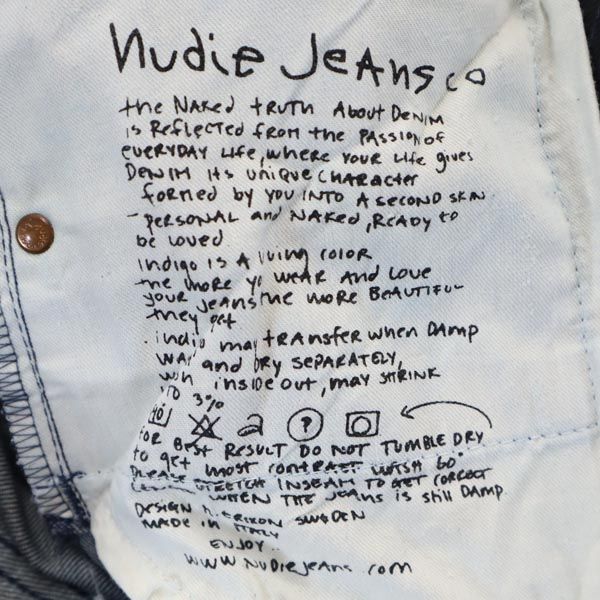 nudie Jeans co
the NAKED tRUtH About DENIM
is Reflected from the PASSION of
EVERYDAY Life, WHERE YOUR Life gives
DENIM its UNIQUE CHARActer
formed by YOU INTO A SECOND SKIN
- PERSONAL and NAKED, READY to
be LOVED
INDIGO IS A LIVING COLOR
the MORE yo WEAR AND LOVE
YOUR JEANS the MORE BEAUTIFUL
they get
indigo may tRANSfer when DAMP
WA and DRY SEPARATELY,
inside out, may SHRINK
TO 3%
40 P
FOR BEST RESULT DO NOT TUMBLE DRY
to get most CONTRAST WASH 60°
PLEASE STRETCH INSEAM TO GET CORRECT
WHEN THE JEANS is still DAMP
DESIGN SWEDEN
MADE IN ITALY
ENJOY..
www.NUDIEJEANS.com